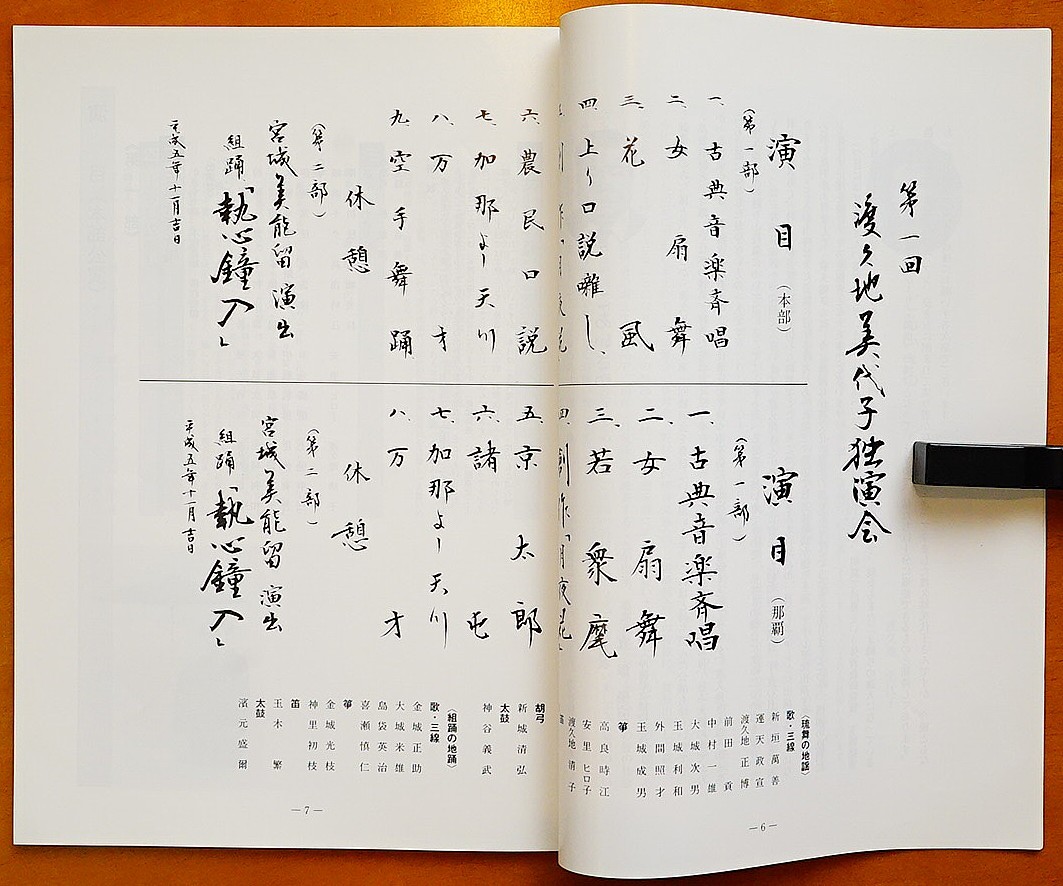 第一回
渡久地美代子独演会
演目(本部)
(第一部)
一、古典音楽斉唱
二、女扇舞
三、花風
四、上り口説囃し
六、農民口説
七、加那よー天川
八、万才
九、空手舞踊
休憩
(第二部)
宮城美能留 演出
組踊「執心鐘入」
平成五年十一月吉日
演目(那覇)
(第一部)
一、古典音楽斉唱
二、女扇舞
三、若衆麾
四、創作「月夜
五、京太郎
六、諸屯
七、加那よー天川
八、万才
休憩
(第二部)
宮城美能留 演出
組踊「執心鐘入」
平成五年十一月吉日
(琉舞の地謡)
歌・三線
新垣萬善
蓮天政宣
渡久地正博
前田貢
中村一雄
大城次男
玉城利和
外間照才
玉城成男
箏
高良時江
安里ヒロ子
渡久地清子
笛
胡弓
新城清弘
太鼓
神谷義武
(組踊の地踊)
歌・三線
金城正助
大城米雄
島袋英治
喜瀬慎仁
箏
金城光枝
神里初枝
笛
玉木繁
太鼓
濱元盛爾
―6―
―7―